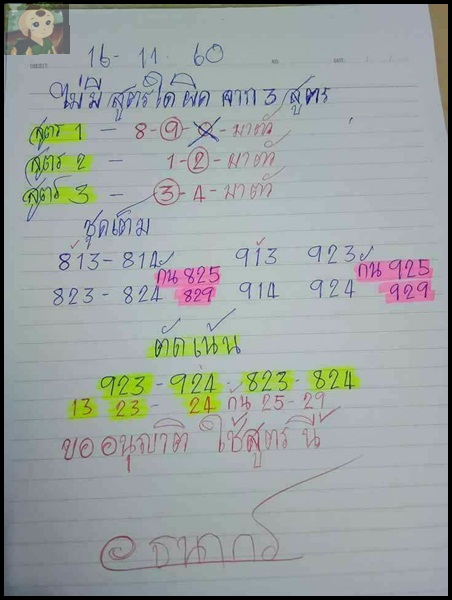 16 - 11 . 60
ไม่มี สูตรใด ผิด จาก 3 สูตร
สูตร 1 - 8 - 9 - มาตัว
สูตร 2 - 1 - 2 - มาตัว
สูตร 3 - 3 - 4 - มาตัว
ชุดเต็ม
813 - 814 913 923
กัน 825 กัน 925
823 - 824 829 914 924 929
ตัดเน้น
923 - 924 - 823 - 824
13 23 - 24 กัน 25 - 29
ขออนุญาติ ใช้สูตรนี้
@ธนากร